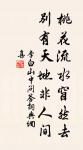 桃花流水窅然去
別有天地非人间
李白山中问答詞典调
喜